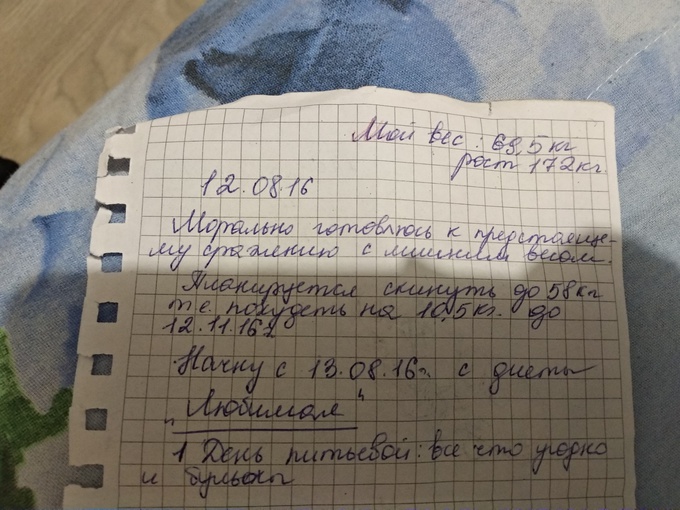 Мой вес: 69,5 кг
рост 172 кг.
12.08.16
Морально готовлюсь к предстояще-
му сражению с лишним весом.
Планируется скинуть до 58 кг
т.е. похудеть на 10,5 кг. до
12.11.16г.
Начну с 13.08.16г. с диеты
"Любимая"
1 День питьевой: все что угодно
и бульоны